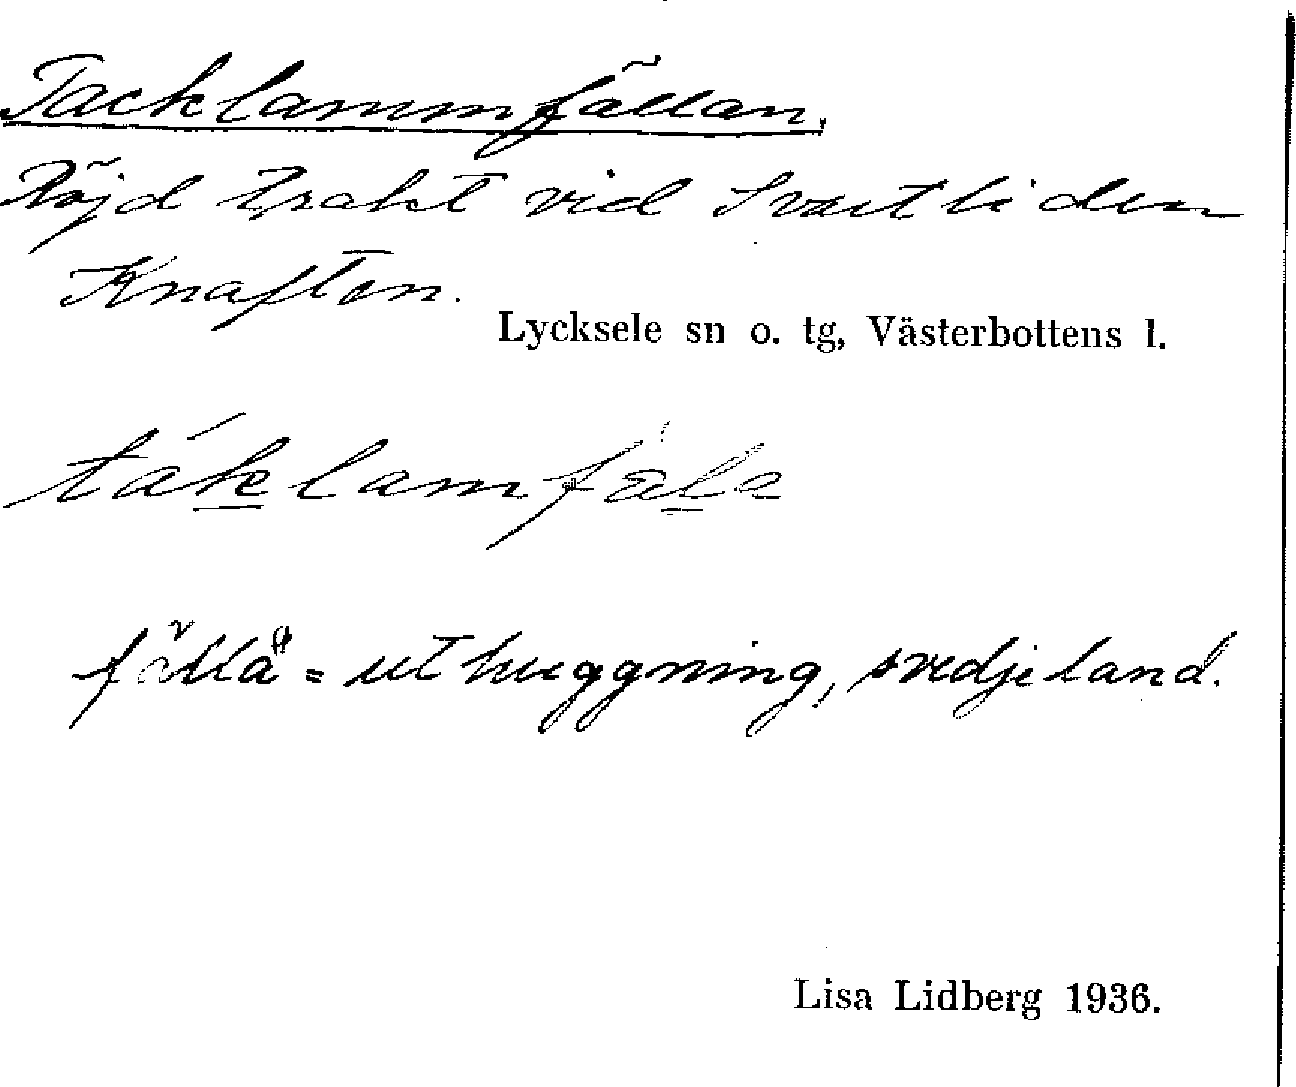 Tacklammfällan.
Röjd trakt vid Svartliden
Knaften.
Lycksele sn o. tg, Västerbottens l.
táklamfàla
fälla = uthuggning, svedjeland.
Lisa Lidberg 1936.